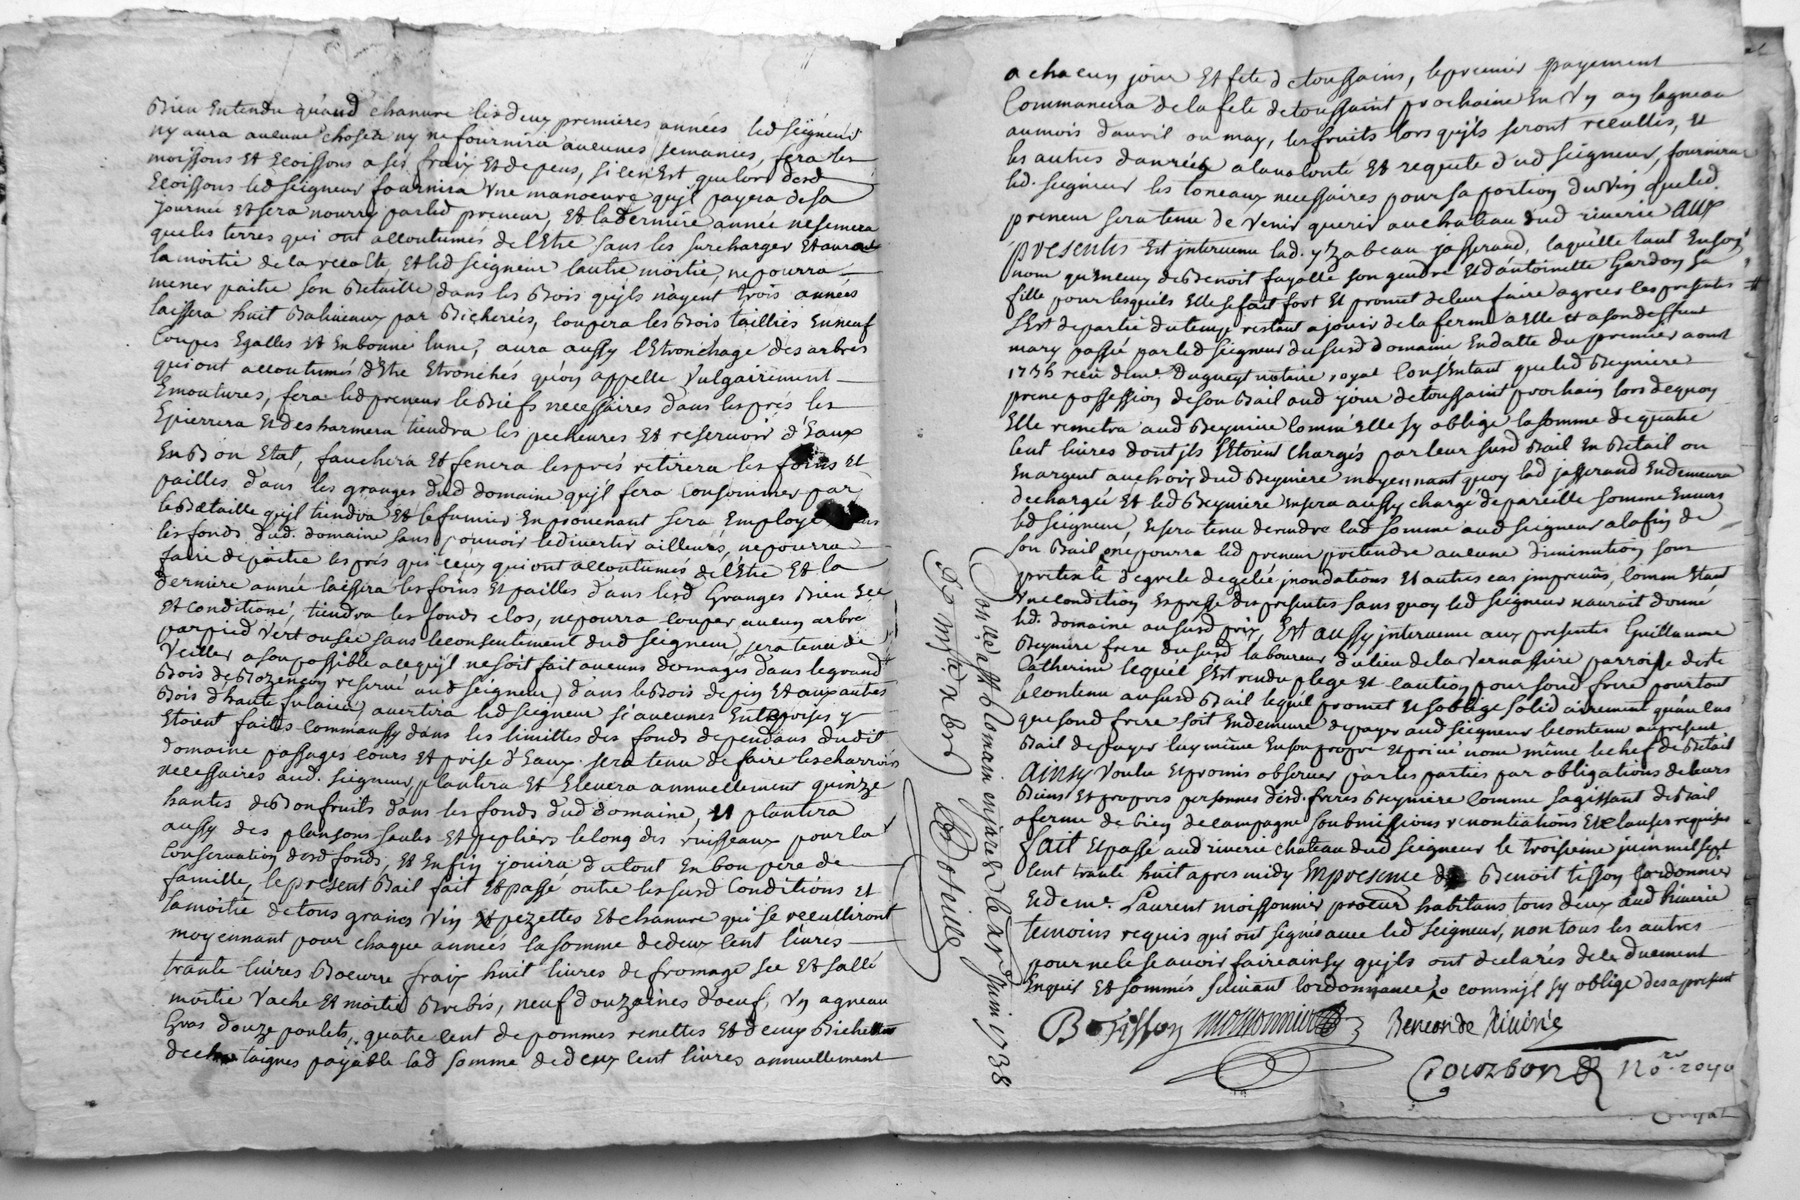 Bien Entendu quand chanvre lesdeux premieres années led seigneur
ny aura aucune chose et ny ne fournira aucunes semances, fera les
moissons Et Ecoissons a ses fraix Et depens, si cen Est que lors desd
Ecoissons led seigneur fournira Vne manoeuvre quil payera desa
journée Et sera nourry parled preneur, Et la derniere année nesemera
que les terres qui ont accoutumés delEtre sans les surcharger Et aura
la moitié de la recolte, et led seigneur lautre moitié, nepourra
mener paitre son Betaille dans les Bois quils nayent trois années
laissera huit Baliveaux par Bicherées, coupera les Bois tailliés En neuf
Coupes Egalles Et En bonne lune, aura aussy lEtronchage des arbres
qui ont accoutumés dEtre Etronchés quon appelle Vulgairement
Emoutures, fera led preneur le Biefs necessaires dans les prés les
Epierrera Et desharmera tiendra les pecheures Et reservoir dEaux
En Bon Etat, fauchera Et fenera lesprés retirera les foins Et
pailles dans les granges dud domaine quil fera Consommer par
le Bétaille quil tiendra Et le fumier En provenant sera Employé
les fonds dud. domaine sans pouvoir ledivertir ailleurs, nepourra
faire depaitre les prés que ceux qui ont accoutumés delEtre Et la
derniere année laissera les foins Et pailles dans lesd Granges Bien Sec
Et conditioné, tiendra les fonds clos, nepourra couper aucun arbre
parpied Vert ou sec sans le consentement dud seigneur, sera tenu de
Veiller a son possible a ce quil ne soit fait aucuns domages dans le grand
Bois de Bozençon reservé aud seigneur, dans le Bois depin Et aux autres
Bois dhaute futaiee, avertira led seigneur si aucunes Entreprises y
Etoient faites comm'aussy dans les limittes des fonds dependans dudit
domaine passages cours Et prise dEaux. sera tenu de faire les charrois
necessaires aud. seigneur, plantera Et Elevera annuellement quinze
hantes de Bonfruits dans les fonds dud domaine, Et plantera
aussy des plansons saules Et pepliers le long des ruisseaux pour la
Conservation desd fonds, Et Enfin jouira du tout En bon pere de
famille, le present Bail fait Et passé outre les susd Conditions Et
lamoitié detous grains Vin Et pezettes Et chanvre qui se recueilliront
moyennant pour chaque années la somme de deux Cent livres
trante livres Boeurre fraix huit livres de fromage sec Et sallé
moitié Vache Et moitié Brebis, neuf douzaines d'oeuf, Vn agneau
Gras douze poulets, quatre cent de pommes renettes Et deux Bichettes
de chataignes payable lad somme de deux cent livres annuellement
a chacun jour Et fete detoussains, lepremier payement
Commancera dela fete detoussaint prochaine En Vn an lagneau
aumois davril ou may, les fruits lors quils seront recultes, Et
les autres danrées alavolonté Et requete dud seigneur, fournira
led. seigneur les toneaux necessaires pour sa portion du vin queled.
preneur sera tenu de Venir querir au chateau dud riverie aux
presentes Est intervenue lad. yzabeau jasserand, laquelle tant En son
nom quEnceux deBenoit fayolle son gendre Et dantoinette Gardon sa
fille pour lesquels Elle se fait fort Et promet deleur faire agreer les presentes
sEst departie du temps restant a jouir de la ferme a Elle et a son deffunt
mary passée par led seigneur du susd domaine En datte du premier aout
1736 recu dem.e Dugueyt notaire royal Consentant que led Beyniere
prene possession deson Bail aud jour detoussaint prochain lors dequoy
Elle remetra aud Beyniere comm'elle sy oblige la somme de quatre
cent livres dont jls Etoient chargés par leur susd Bail En Betail ou
En argent au choix dud Beyniere moyennant quoy lad jasserand En demeura
dechargée Et led Beyniere En sera aussy chargé de pareille somme Envers
led seigneur, Et sera tenu derendre lad somme aud seigneur alafin de
son Bail, nepourra led preneur pretendre aucune diminution sous
pretexte degrele degelée jnondations Et autres cas imprevus, Comm'Etant
Vne condition Expresse des presentes sans quoy led seigneur nauroit donné
led. domaine au susd prix, Est aussy intervenu aux presentes Guillaume
Beyniere frere du susd laboureur du lieu de la Vernassiere parroisse de ste
Catherine lequel sEst rendu plege Et caution pour sond frere pour tout
le contenu au susd Bail lequel promet Et soblige solidairement qu'en cas
que sond frere soit En demeure depayer aud seigneur le contenu aupresent
Bail depayer luy même En son propre Et privé nom même le chef de Betail
Ainsy Voulu Et promis observer par les parties par obligations de leurs
Biens Et propres personnes desd. freres Beyniere comme sagissant de Bail
a ferme de Bien de campagne soubmissions renontiations Et clauses requises
fait Et passé aud riverie chateau dud seigneur le troisieme juin mil sept
cent trante huit apres midy En presence de Benoit tisson Cordonnier
Et de me. Laurent moissonnier procur habitans tous deux aud Riverie
temoins requis qui ont signé avec led seigneur, non tous les autres
pour ne le sçavoir faire ainsy quils ont declarés de ce duement
Enquis Et sommés suivant lordonnance, comm'jl sy oblige desapresent
B Tisson moissonnier Benconde Riviric
Courbon No.re royal
Con.lé a st romain en jarez le xv juin 1738